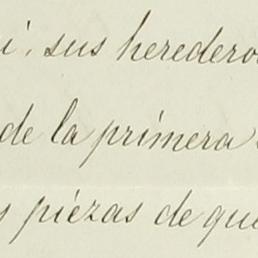 i. sus herederos
de la primera
s piezas de que